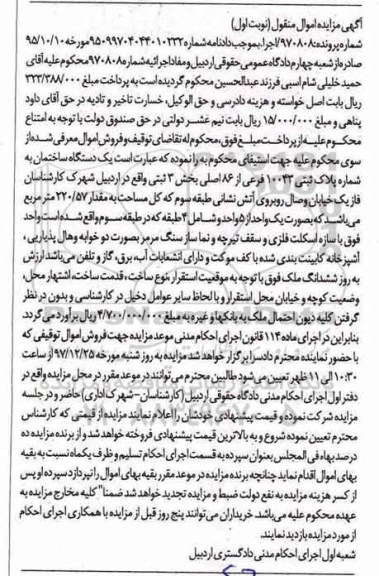 آگهی مزایده اموال منقول (نوبت اول)
شماره پرونده: ۹۷۰۸۰۸/اجرا، بموجب دادنامه شماره ۹۵۰۹۹۷۰۴۰۴۴۰۱۰۲۳۲ مورخه ۹۵/۱۰/۱۰
صادره از شعبه چهارم دادگاه عمومی حقوقی اردبیل و مفاد اجرائیه شماره ۹۷۰۸۰۸ محکوم علیه آقای
حمید خلیلی شام اسبی فرزند عبدالحسین محکوم گردیده است به پرداخت مبلغ ۳۲۲/۳۸۷/۰۰۰
ریال بابت اصل خواسته و هزینه دادرسی و حق الوکیل، خسارت تاخیر و تادیه در حق آقای داود
پناهی و مبلغ ۱۵/۰۰۰/۰۰۰ ریال بابت نیم عشر دولتی در حق صندوق دولت با توجه به امتناع
محکوم علیه از پرداخت مبلغ فوق، محکوم له تقاضای توقیف و فروش اموال معرفی شده از
سوی محکوم علیه جهت استیفای محکوم به را نموده که عبارت است یک دستگاه ساختمان به
شماره پلاک ثبتی ۱۰۰۴۳ فرعی از ۸۶ اصلی بخش ۳ ثبتی واقع در اردبیل شهرک کارشناسان
فاز یک خیابان وصال روبروی آتش نشانی طبقه سوم که کل مساحت به مقدار ۲۲۰/۵۷ متر مربع
می باشد که بصورت یک واحد از ۵ واحد و شامل ۴ طبقه که در طبقه سوم واقع شده است واحد
فوق با سازه اسکلت فلزی و سقف تیرچه و نما ساز سنگ مرمر بصورت دو خوابه و هال پذیرایی،
آشپزخانه کابینت بندی شده با کف موکت و دارای انشعابات آب، برق، گاز و تلفن می باشد ارزش
به روز ششدانگ ملک فوق با توجه به موقعیت استقرار، نوع ساخت، قدمت ساخت، اشتهار محل،
وضعیت کوچه و خیابان محل استقرار و با لحاظ سایر عوامل دخیل در کارشناسی و بدون در نظر
گرفتن کلیه دیون احتمال ملک به بانکها و غیره به مبلغ ۴/۷۰۰/۰۰۰/۰۰۰ ریال برآورد می گردد.
بنابراین در اجرای ماده ۱۱۴ قانون اجرای احکام مدنی موعد مزایده جهت فروش اموال توقیفی که
با حضور نماینده محترم دادسرا برگزار خواهد شد مزایده به روز شنبه مورخه ۹۷/۱۲/۲۵ از ساعت
۱۰:۳۰ الی ۱۱ ظهر تعیین می شود طالبین محترم می توانند در موعد مقرر در محل مزایده واقع در
دفتر اول اجرای احکام مدنی دادگاه حقوقی اردبیل (کارشناسان-شهرک اداری) حاضر و در جلسه
مزایده شرکت نموده و قیمت پیشنهادی خودشان را اعلام نمایند مزایده از قیمتی که کارشناس
محترم تعیین نموده شروع و به بالاترین قیمت پیشنهادی فروخته خواهد شد و از برنده مزایده ده
درصد بهاء فی المجلس بعنوان سپرده به قسمت اجرای احکام تسلیم و ظرف یکماه نسبت به بقیه
بهای اموال اقدام نماید چنانچه برنده مزایده در موعد مقرر بقیه بهای اموال را نپردازد سپرده او پس
از کسر هزینه مزایده به نفع دولت ضبط و مزایده تجدید خواهد شد ضمنا" کلیه مخارج مزایده به
عهده محکوم علیه می باشد. خریداران می توانند پنج روز قبل از مزایده با همکاری اجرای احکام
از مورد مزایده بازدید نمایند.
شعبه اول اجرای احکام مدنی دادگستری اردبیل